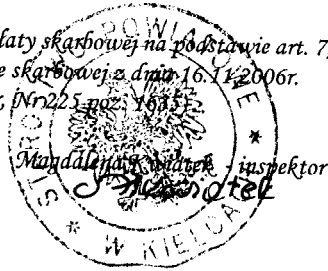 łaty skarbowej na podstawie art. 7,
e skarbowej z dnia 16.11.2006r.
, Nr 225 poz. 1635)
Magdalena Kwiatek - inspektor
STAROSTWO POWIATOWE
* W KIELCACH *